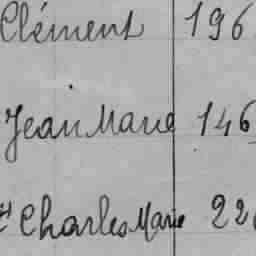 Clément 196
Jean Marie 146
Charles Marie 22